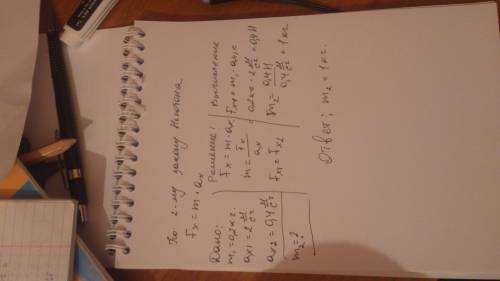 По 2-му закону Ньютона
Fx = m · ax
Дано:
m₁ = 0,2 кг.
ax1 = 2 м/с²
ax2 = 0,4 м/с²
m₂ = ?
Решение:
Fx = m · ax
m = Fx/ax
Fx1 = Fx2
Вычисление
Fx1 = m₁ · ax1 =
= 0,2 кг · 2 м/с² = 0,4 Н
m₂ = 0,4 Н / 0,4 м/с² = 1 кг.
Ответ; m₂ = 1 кг.